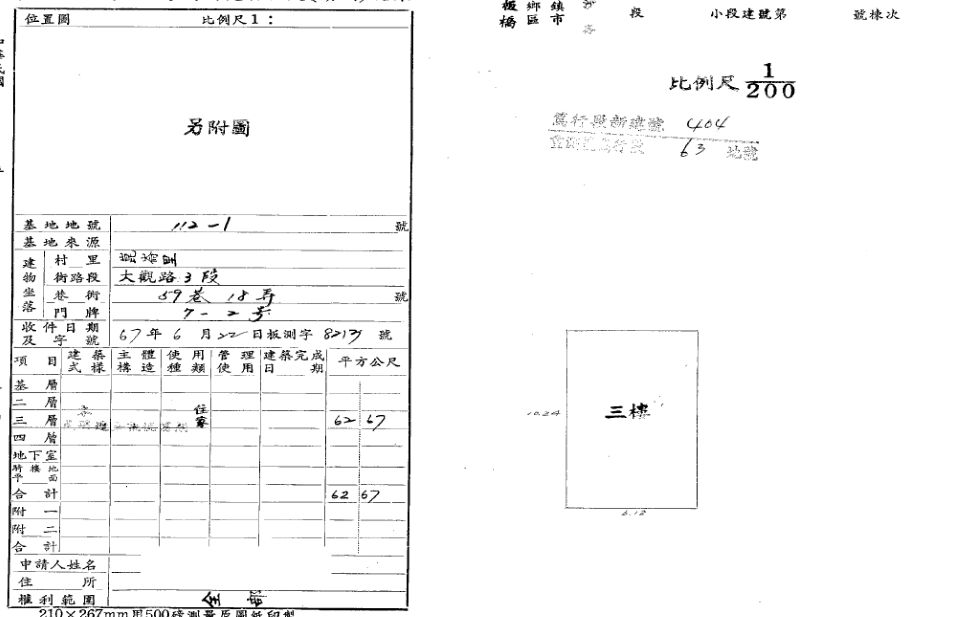 位置圖 比例尺1：
另附圖
基地地號 112-1 號
基地來源
建物坐落 村里 崑崙里
街路段 大觀路3段
巷衖 59巷18弄 號
門牌 7-2号
收件日期及字號 67年6月22日板測字8213號
項目 建築式樣 主體構造 使用種類 管理使用 建築完成日期 平方公尺
基層
二層
三層 住家 62 67
四層
地下室
騎樓地平面
合計 62 67
附一
附二
合計
申請人姓名
住所
權利範圍 全部
210×267mm用500磅測量原圖紙印製
板橋 鄉鎮區市 段 小段建號第 號棟次
比例尺 1/200
篤行段新建號 404
63 地號
三樓
10.24
6.12